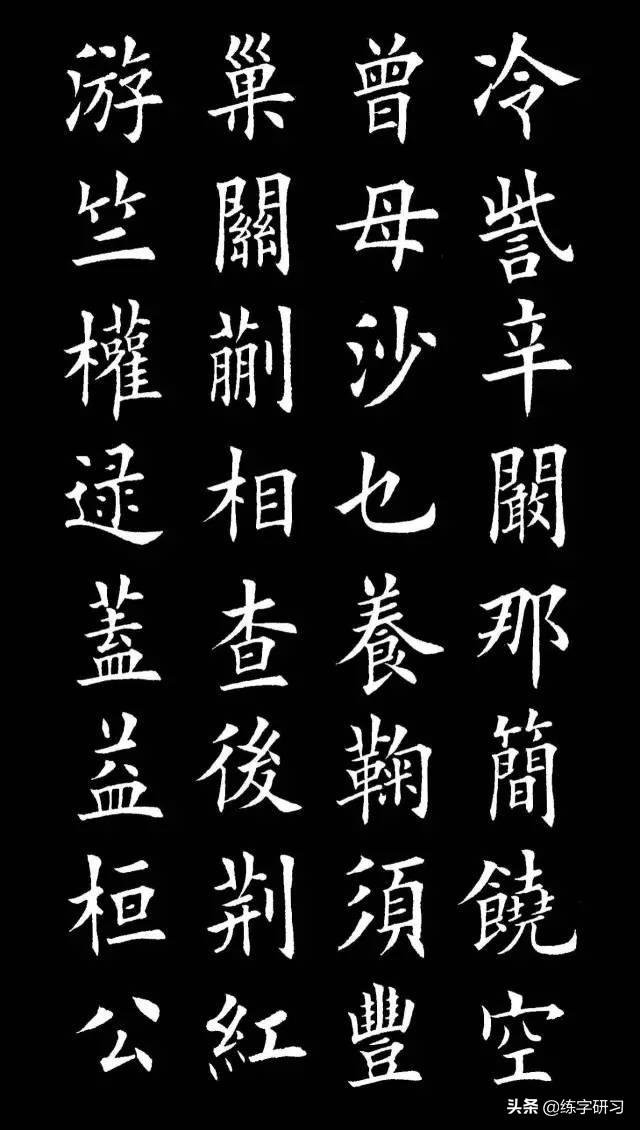 冷訾辛闞那簡饒空
曾母沙乜養鞠須豐
巢關蒯相查後荆紅
游竺權逯蓋益桓公
头条 @练字研习